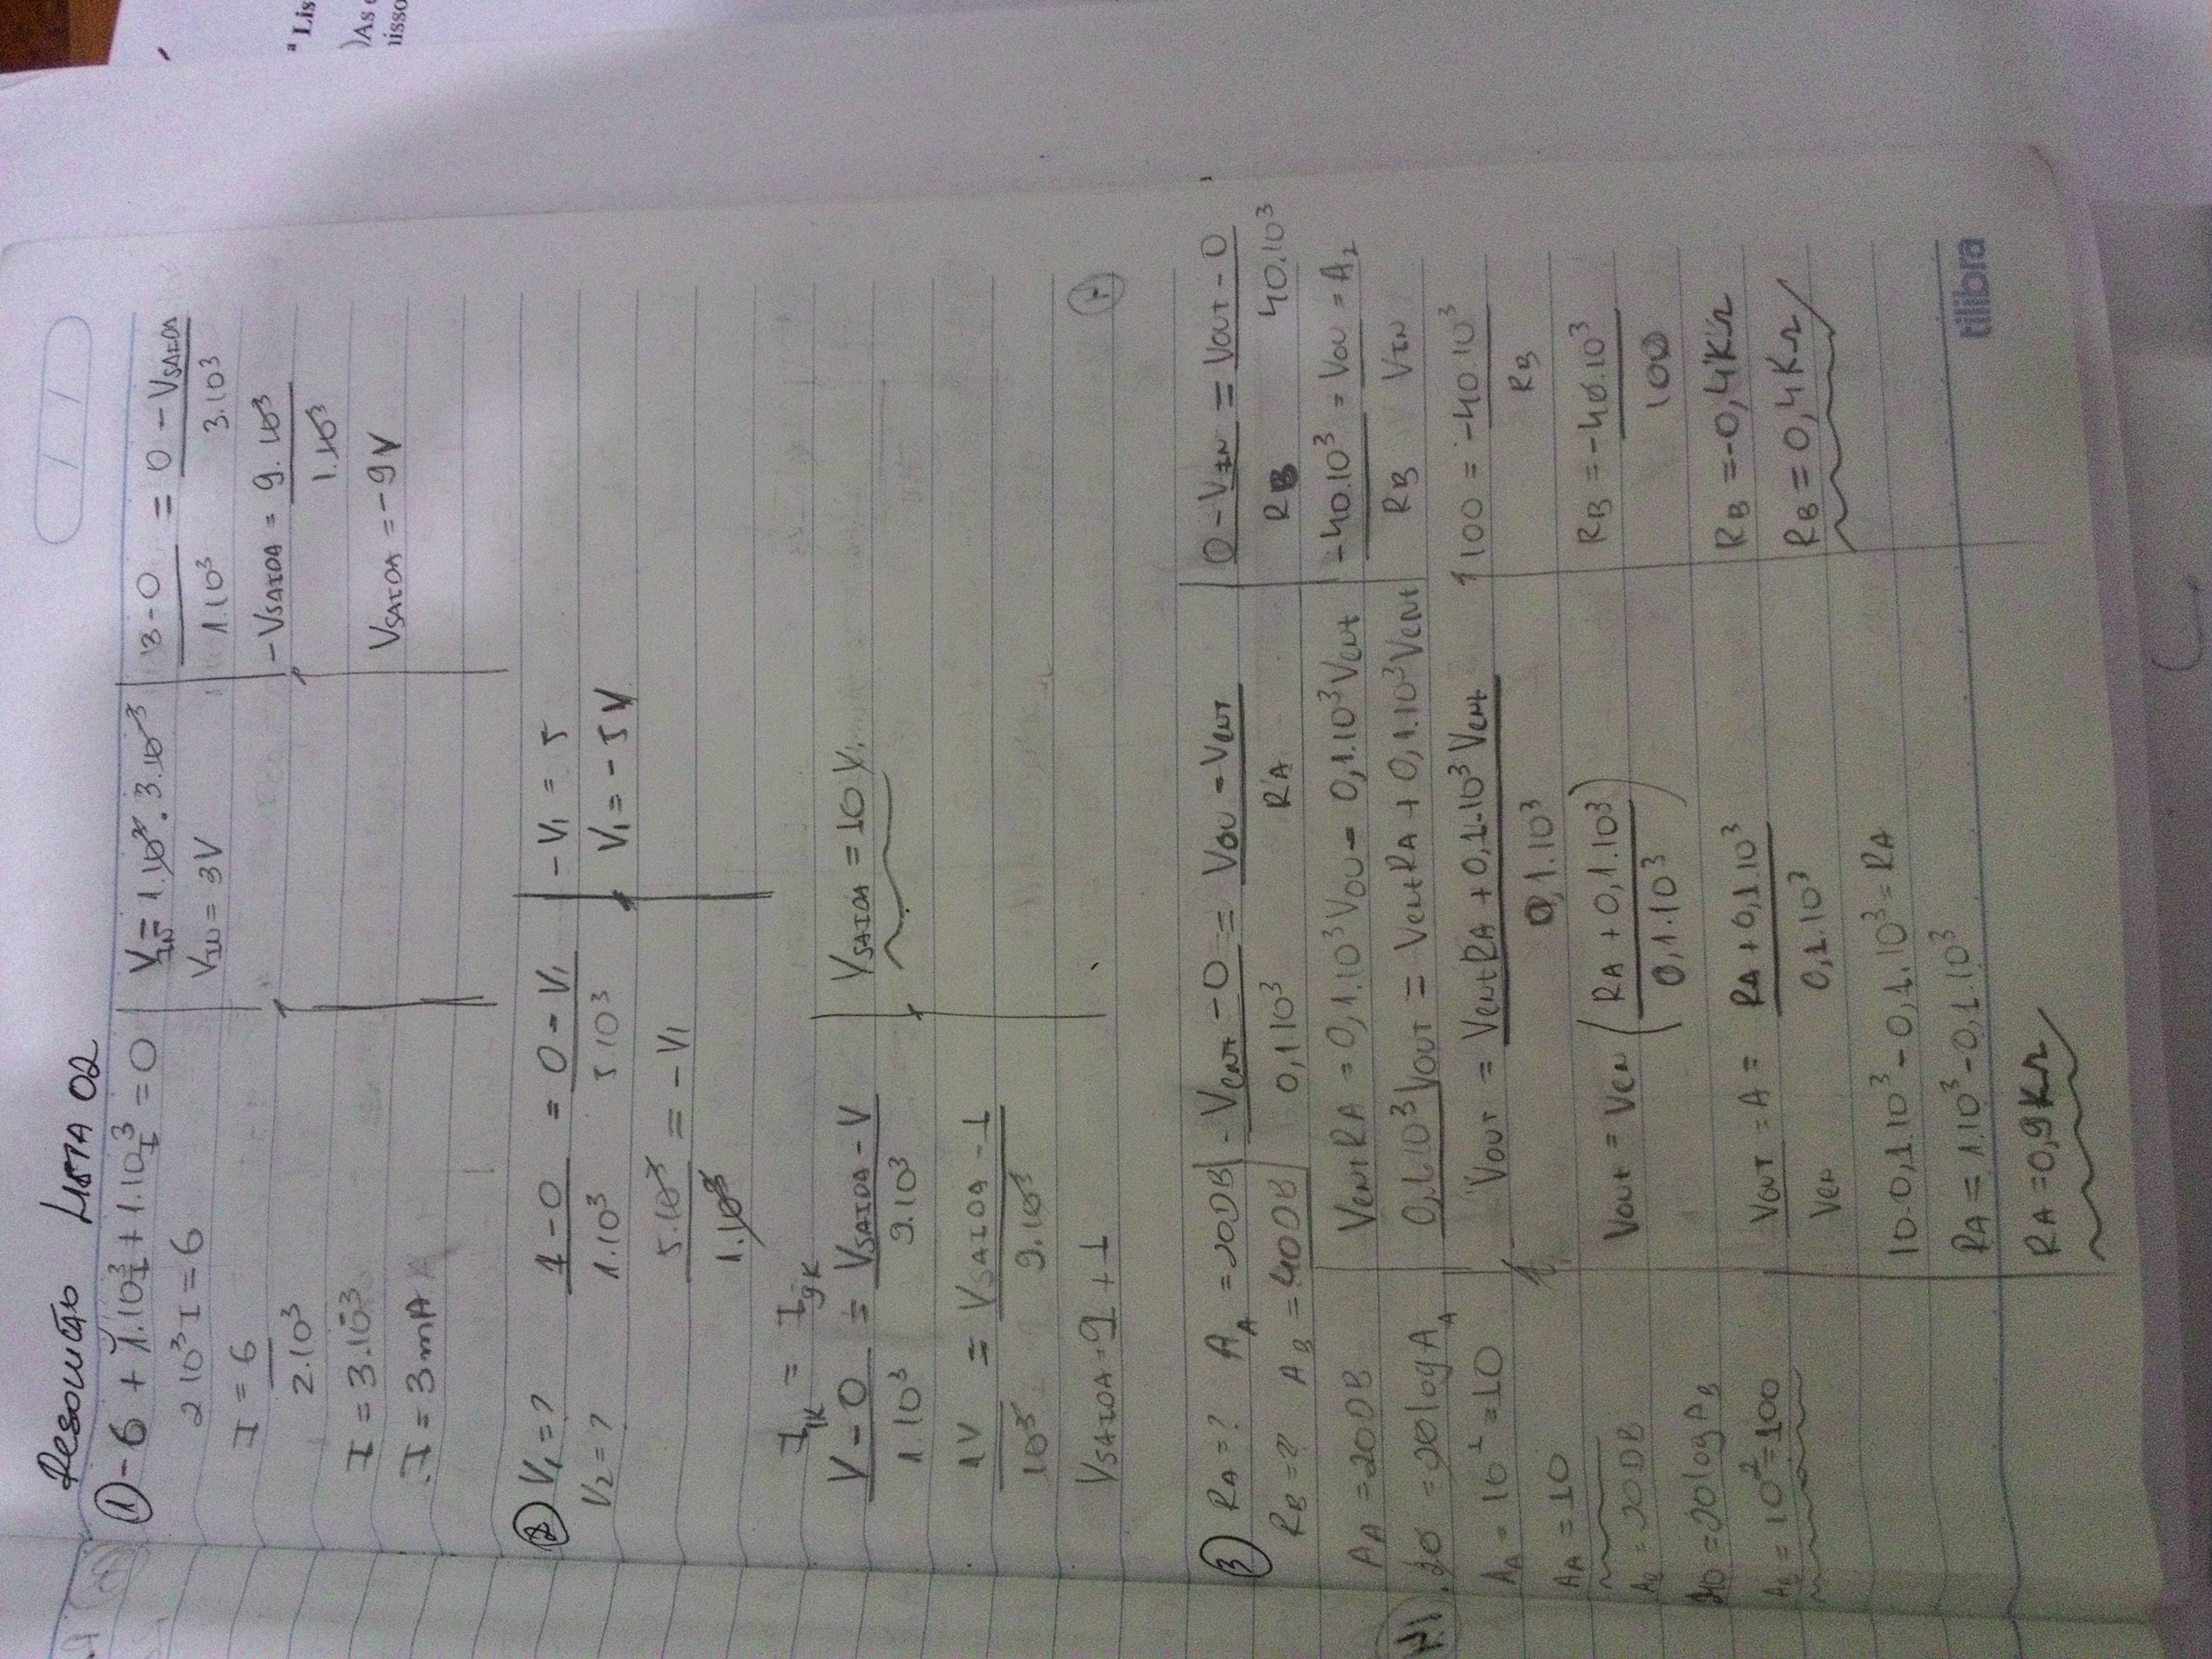 ª Lis
)As
lisso
/ /
Resolução LISTA 02
① -6 + 1.10³I + 1.10³I = 0
2 10³ I = 6
I = 6
2.10³
I = 3.10³
I = 3mA
VIN = 1.10³ . 3.10³
VIN = 3V
3 - 0 = 0 - VSAIDA
1.10³ 3.10³
-VSAIDA = 9.10³
1.10³
VSAIDA = -9V
② V₁ = ?
V₂ = ?
1 - 0 = 0 - V₁
1.10³ 5 10³
5.10³ = -V₁
1.10³
-V₁ = 5
V₁ = -5V
I1K = I9K
V - 0 = VSAIDA - V
1.10³ 9.10³
1V = VSAIDA - 1
10³ 9.10³
VSAIDA = 9 + 1
VSAIDA = 10V
③ RA = ? AA = 20DB
RB = ? AB = 40DB
AA = 20DB
20 = 20logAA
AA = 10¹ = 10
AA = 10
AB = 20DB
40 = 20logAB
AB = 10² = 100
VENT - 0 = VOU - VENT
0,1 10³ RA
VENTRA = 0,1.10³VOU - 0,1.10³VENT
0,1.10³VOUT = VENTRA + 0,1.10³VENT
VOUT = VENTRA + 0,1.10³VENT
0,1.10³
VOUT = VEN (RA + 0,1.10³)
0,1.10³
VOUT = A = RA + 0,1.10³
VEN 0,1.10³
10.0,1.10³ - 0,1.10³ = RA
RA = 1.10³ - 0,1.10³
RA = 0,9KΩ
0 - VIN = VOUT - 0
RB 40.10³
-40.10³ = VOU = A₂
RB VIN
100 = -40.10³
RB
RB = -40.10³
100
RB = -0,4KΩ
RB = 0,4KΩ
tilibra